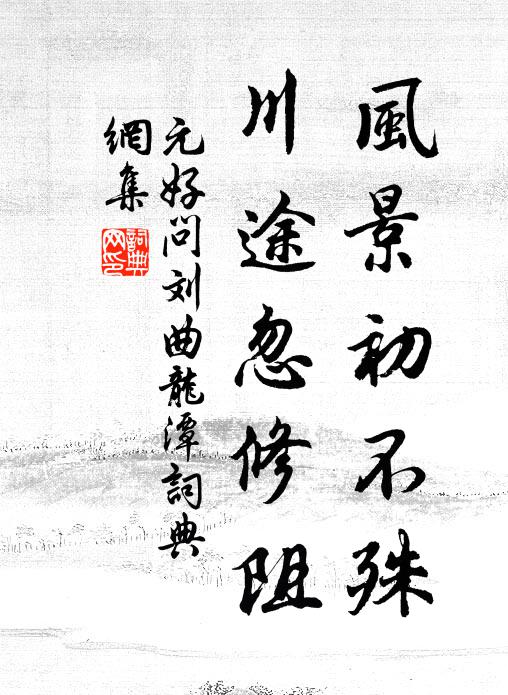 風景初不殊
川途忽修阻
元好问刘曲龍潭詞典
網集
詞典網印